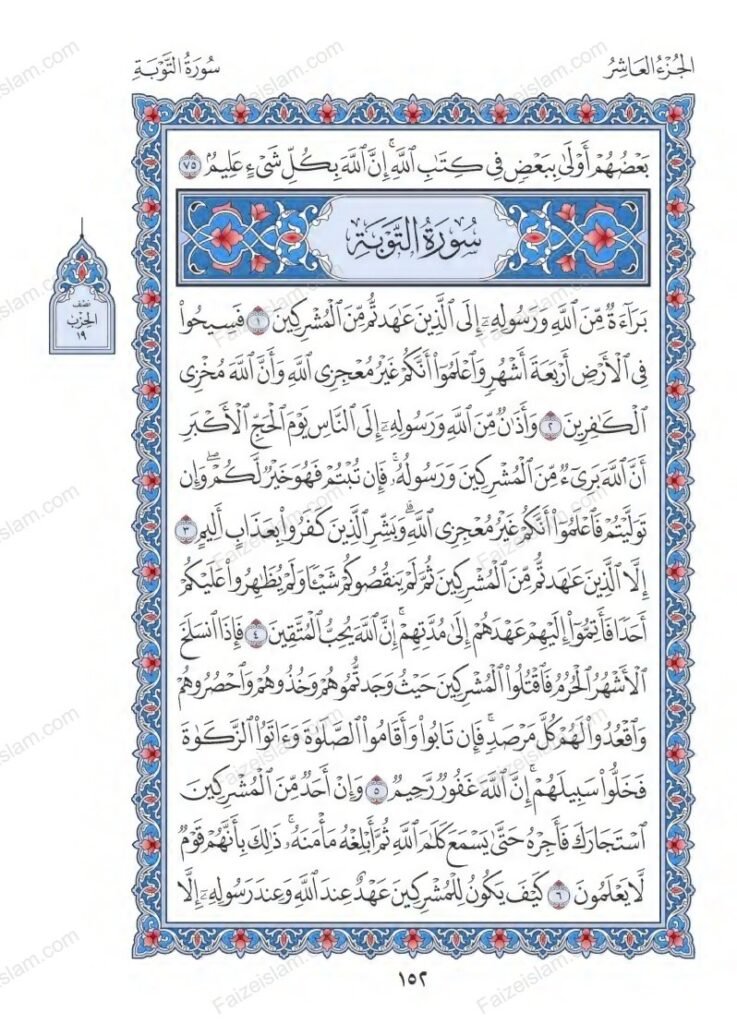 الجُزْءُ العَاشِرُ
سُورَةُ التَّوْبَةِ
بَعْضُهُمْ أَوْلَىٰ بِبَعْضٍ فِى كِتَٰبِ ٱللَّهِ ۚ إِنَّ ٱللَّهَ بِكُلِّ شَىْءٍ عَلِيمٌۢ ٧٥
سُورَةُ التَّوْبَةِ
بَرَآءَةٌ مِّنَ ٱللَّهِ وَرَسُولِهِۦٓ إِلَى ٱلَّذِينَ عَٰهَدتُّم مِّنَ ٱلْمُشْرِكِينَ ١ فَسِيحُوا۟
فِى ٱلْأَرْضِ أَرْبَعَةَ أَشْهُرٍ وَٱعْلَمُوٓا۟ أَنَّكُمْ غَيْرُ مُعْجِزِى ٱللَّهِ وَأَنَّ ٱللَّهَ مُخْزِى
ٱلْكَٰفِرِينَ ٢ وَأَذَٰنٌ مِّنَ ٱللَّهِ وَرَسُولِهِۦٓ إِلَى ٱلنَّاسِ يَوْمَ ٱلْحَجِّ ٱلْأَكْبَرِ
أَنَّ ٱللَّهَ بَرِىٓءٌ مِّنَ ٱلْمُشْرِكِينَ وَرَسُولُهُۥ ۚ فَإِن تُبْتُمْ فَهُوَ خَيْرٌ لَّكُمْ ۖ وَإِن
تَوَلَّيْتُمْ فَٱعْلَمُوٓا۟ أَنَّكُمْ غَيْرُ مُعْجِزِى ٱللَّهِ ۗ وَبَشِّرِ ٱلَّذِينَ كَفَرُوا۟ بِعَذَابٍ أَلِيمٍ ٣
إِلَّا ٱلَّذِينَ عَٰهَدتُّم مِّنَ ٱلْمُشْرِكِينَ ثُمَّ لَمْ يَنقُصُوكُمْ شَيْـًٔا وَلَمْ يُظَٰهِرُوا۟ عَلَيْكُمْ
أَحَدًا فَأَتِمُّوٓا۟ إِلَيْهِمْ عَهْدَهُمْ إِلَىٰ مُدَّتِهِمْ ۚ إِنَّ ٱللَّهَ يُحِبُّ ٱلْمُتَّقِينَ ٤ فَإِذَا ٱنسَلَخَ
ٱلْأَشْهُرُ ٱلْحُرُمُ فَٱقْتُلُوا۟ ٱلْمُشْرِكِينَ حَيْثُ وَجَدتُّمُوهُمْ وَخُذُوهُمْ وَٱحْصُرُوهُمْ
وَٱقْعُدُوا۟ لَهُمْ كُلَّ مَرْصَدٍ ۚ فَإِن تَابُوا۟ وَأَقَامُوا۟ ٱلصَّلَوٰةَ وَءَاتَوُا۟ ٱلزَّكَوٰةَ
فَخَلُّوا۟ سَبِيلَهُمْ ۚ إِنَّ ٱللَّهَ غَفُورٌ رَّحِيمٌ ٥ وَإِنْ أَحَدٌ مِّنَ ٱلْمُشْرِكِينَ
ٱسْتَجَارَكَ فَأَجِرْهُ حَتَّىٰ يَسْمَعَ كَلَٰمَ ٱللَّهِ ثُمَّ أَبْلِغْهُ مَأْمَنَهُۥ ۚ ذَٰلِكَ بِأَنَّهُمْ قَوْمٌ
لَّا يَعْلَمُونَ ٦ كَيْفَ يَكُونُ لِلْمُشْرِكِينَ عَهْدٌ عِندَ ٱللَّهِ وَعِندَ رَسُولِهِۦٓ إِلَّا
نصف
الحزب
١٩
١٥٢
Faizeislam.com